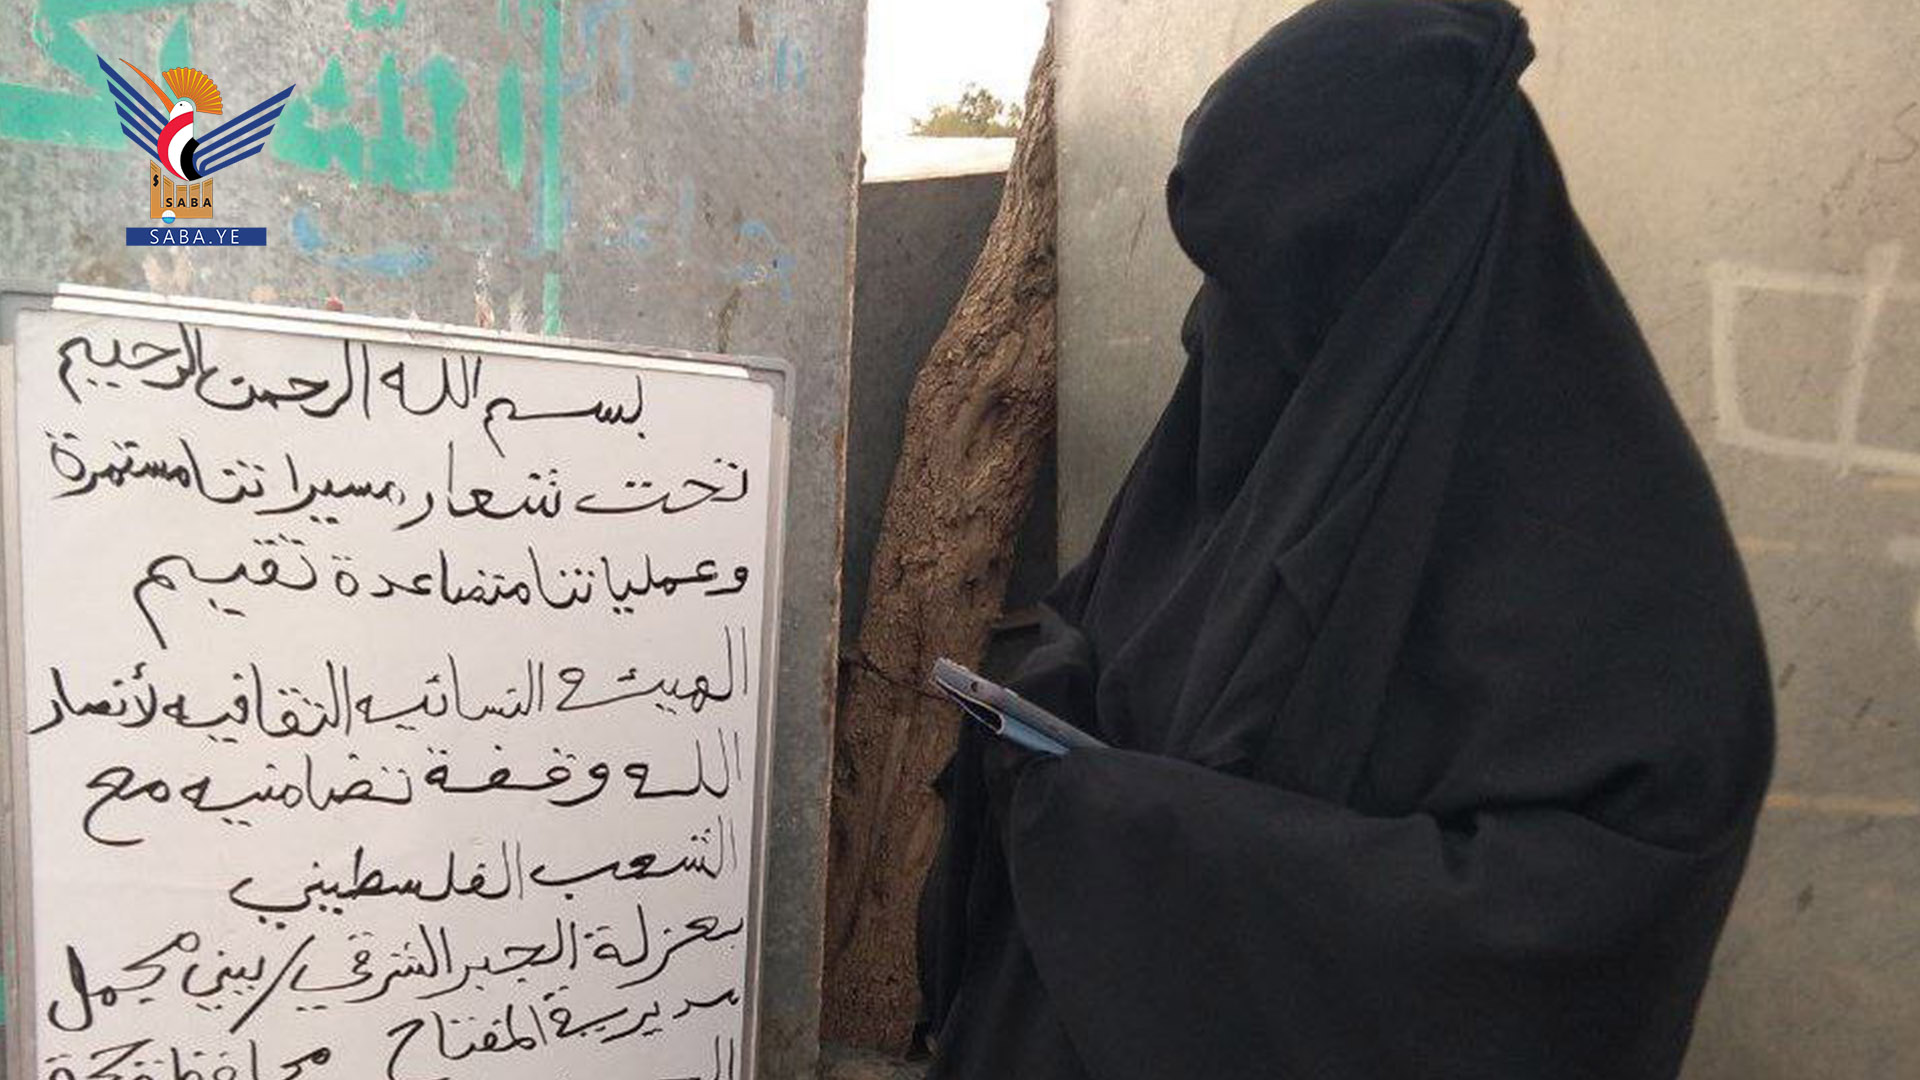 SABA
SABA.YE
بسم الله الرحمن الرحيم
تحت شعار مسيراتنا مستمرة
وعملياتنا متصاعدة تقيم
الهيئة النسائيه الثقافيه لأنصار
الله وقفة تضامنيه مع
الشعب الفلسطيني
بعزلة الجبر الشرقي/بيني مجمل
مديرية المفتاح محافظة حجة